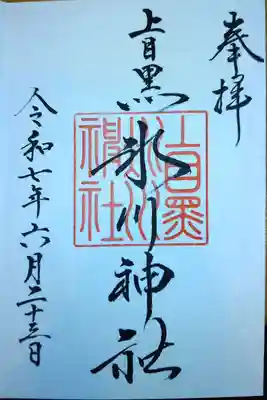 奉拝
上目黒氷川神社
上目黒氷川神社
令和七年六月二十三日